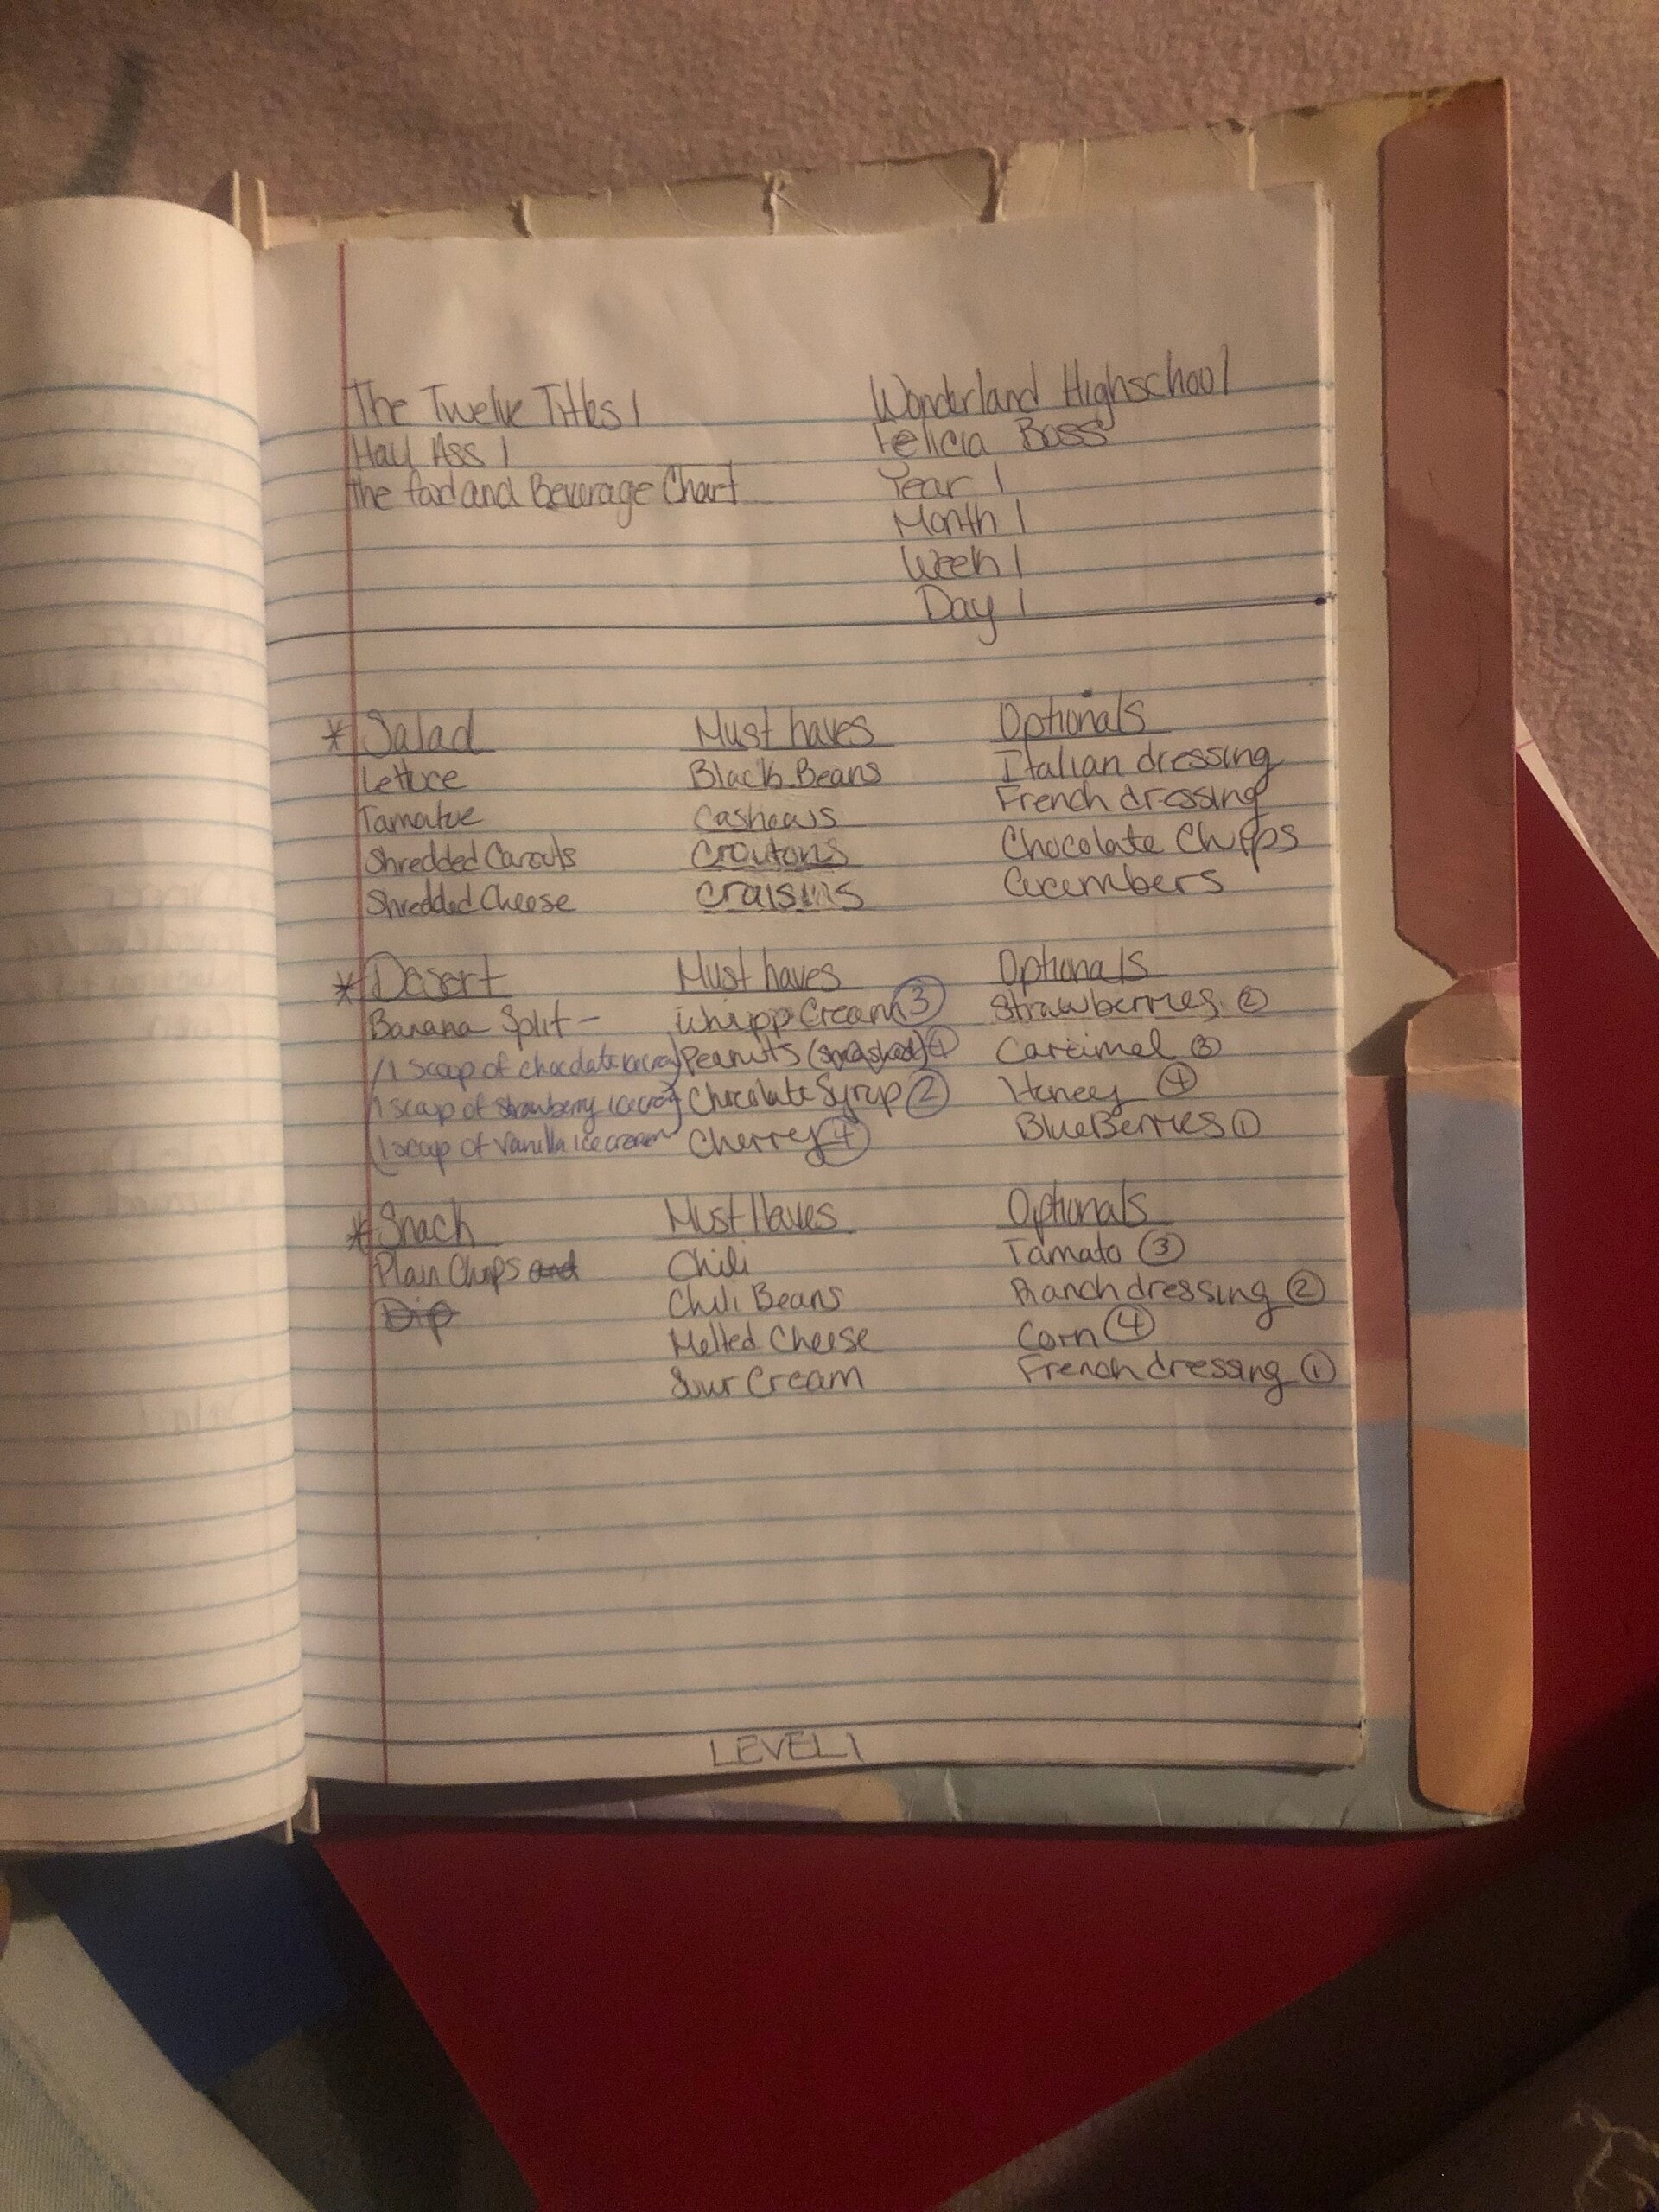 The Twelve Titles 1 Wonderland Highschool
Hall Ass 1 Felicia Boss
The food and Beverage Chart Year 1
Month 1
Week 1
Day 1
*Salad Must haves Optionals
Lettuce Black Beans Italian dressing
Tamatoe Cashews French dressing
Shredded Carouts Croutons Chocolate Chipps
Shredded Cheese Craisins Cucumbers
*Desert Must haves Optionals
Banana Split- Whipp Cream ③ Strawberries ②
(1 scoop of chocolate icecream) Peanuts (smashed) Caramel ③
(1 scoop of strawberry icecream) Chocolate Syrup ② Honey ④
(1 scoop of Vanilla ice cream) Cherry ④ BlueBerries ①
*Snack Must Haves Optionals
Plain Chips and Chili Tamato ③
Dip Chili Beans Ranch dressing ②
Melted Cheese Corn ④
Sour Cream French dressing ①
LEVEL 1